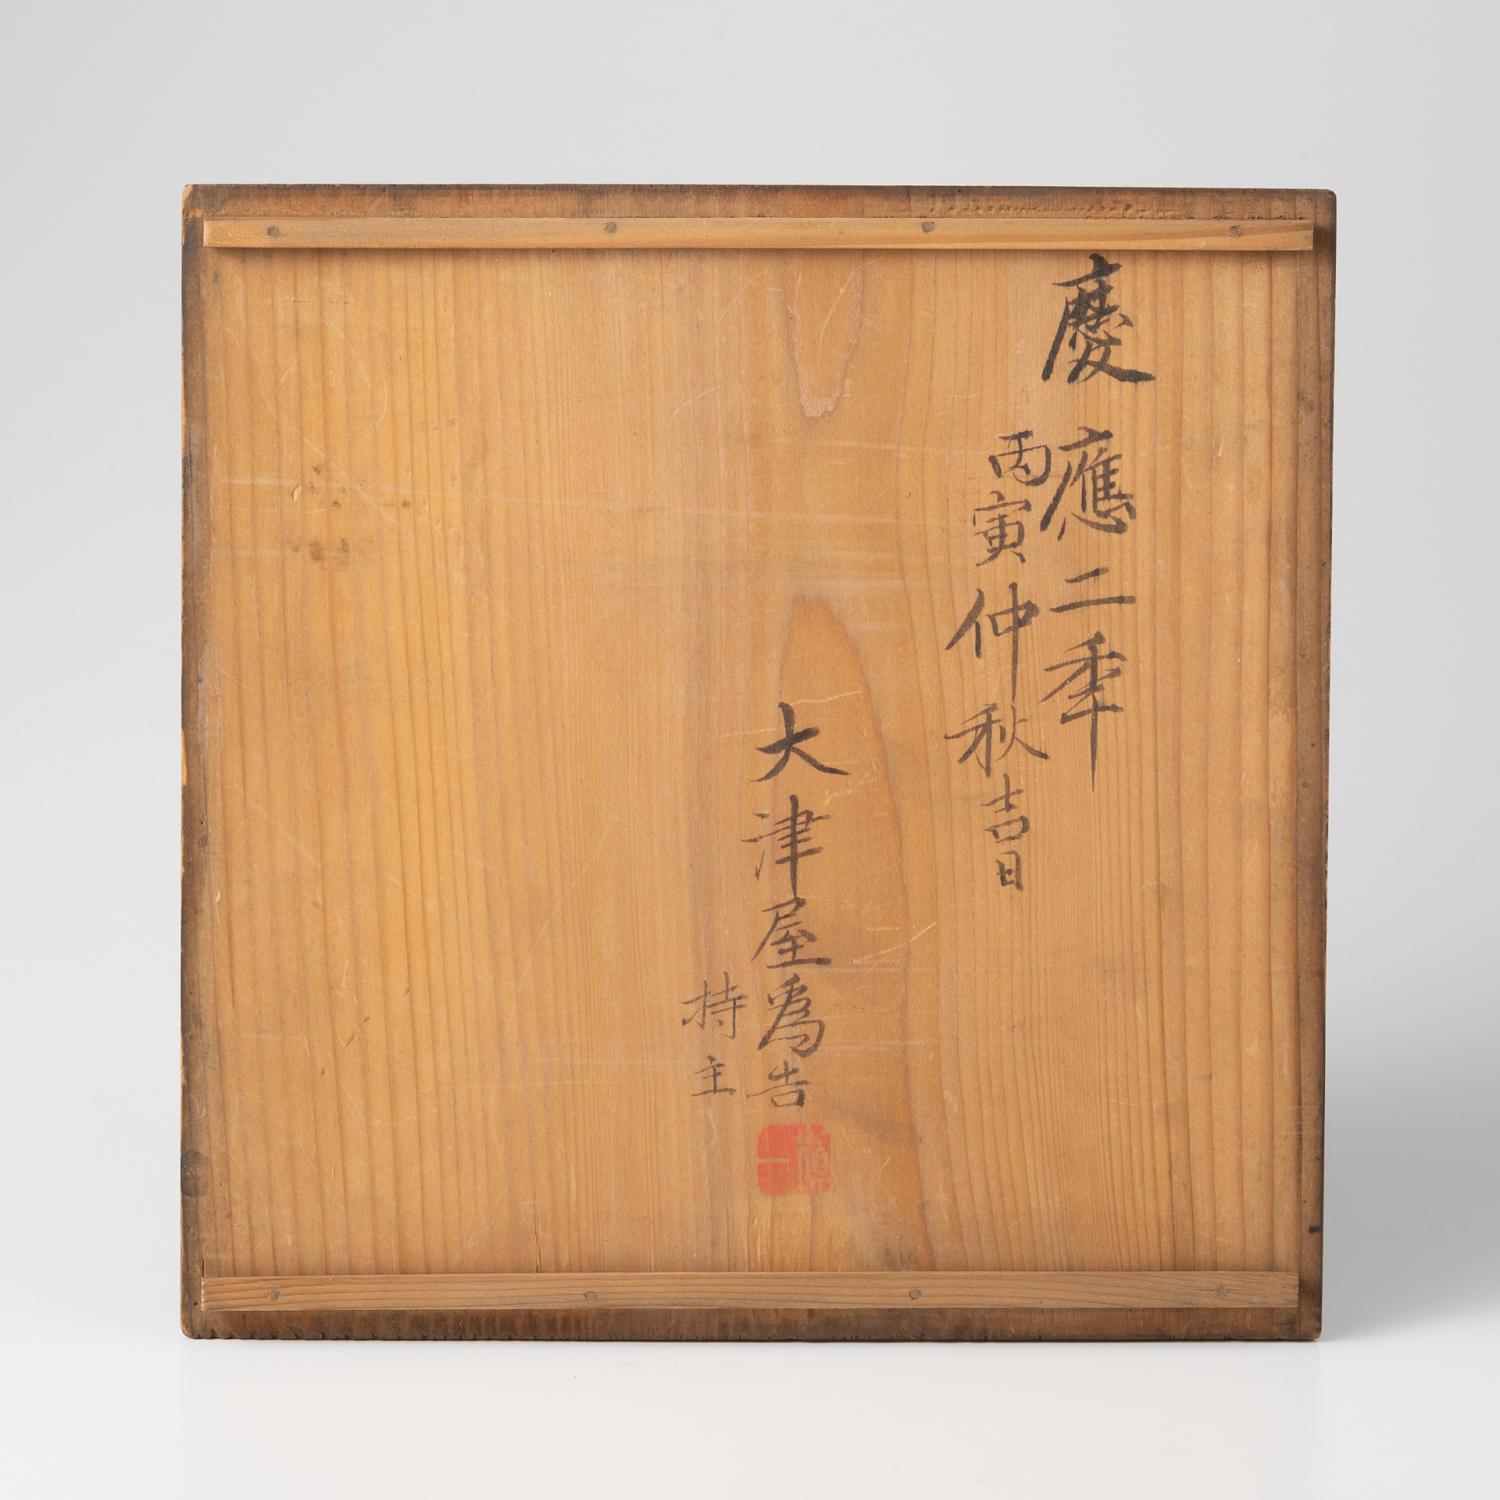 慶應二季
丙寅仲秋吉日
大津屋為吉
持主